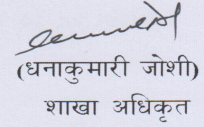 (धनाकुमारी जोशी)
शाखा अधिकृत